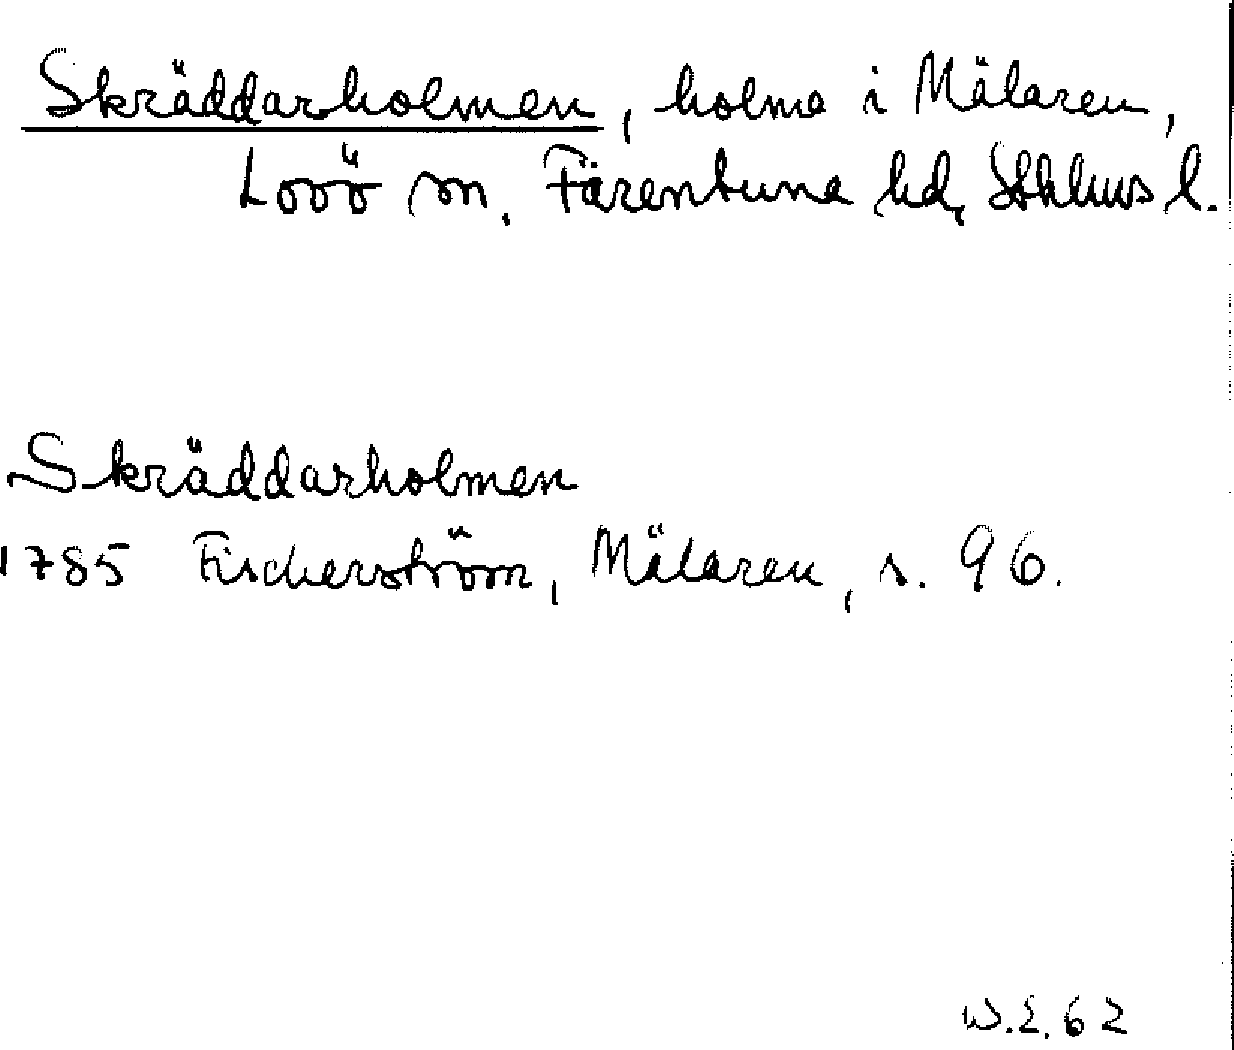 Skräddarholmen, holme i Mälaren,
Lovö sn, Färentuna hd, Sthlms l.
Skräddarholmen
1785 Fischerström, Mälaren, s. 96.
W.E. 62